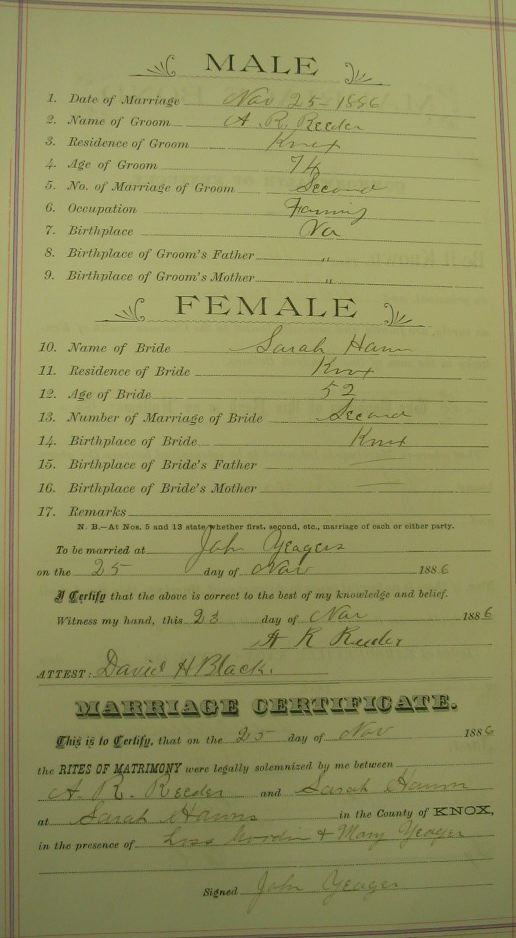 MALE
1. Date of Marriage Nov 25 - 1886
2. Name of Groom A R Reeder
3. Residence of Groom Knox
4. Age of Groom 74
5. No. of Marriage of Groom Second
6. Occupation Farming
7. Birthplace Va
8. Birthplace of Groom's Father "
9. Birthplace of Groom's Mother "
FEMALE
10. Name of Bride Sarah Hann
11. Residence of Bride Knox
12. Age of Bride 52
13. Number of Marriage of Bride Second
14. Birthplace of Bride Knox
15. Birthplace of Bride's Father —
16. Birthplace of Bride's Mother —
17. Remarks
N. B.—At Nos. 5 and 13 state whether first, second, etc., marriage of each or either party.
To be married at John Yeagers
on the 25 day of Nov 1886
I Certify that the above is correct to the best of my knowledge and belief.
Witness my hand, this 23 day of Nov 1886
A R Reeder
ATTEST: David H Black.
MARRIAGE CERTIFICATE.
This is to Certify, that on the 25 day of Nov 1886
the RITES OF MATRIMONY were legally solemnized by me between
A. R. Reeder and Sarah Hann
at Sarah Hanns in the County of KNOX,
in the presence of & Mary Yeager
Signed John Yeager